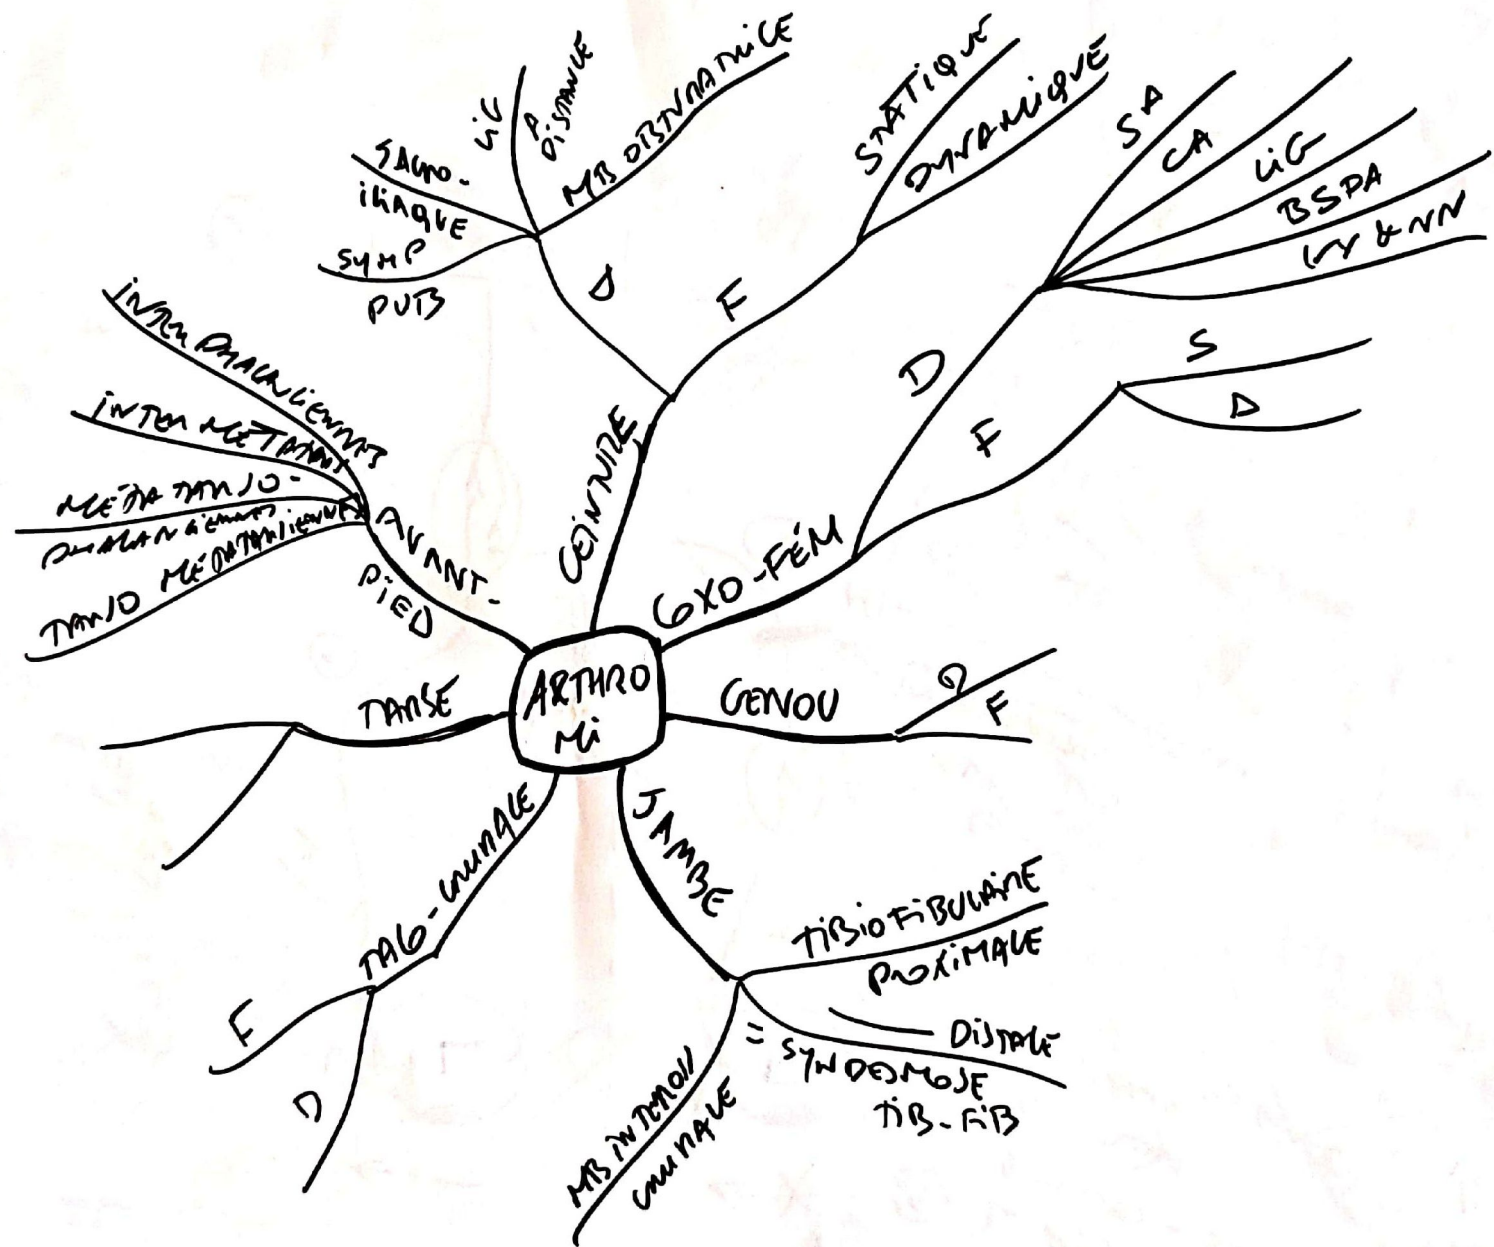 ARTHRO
Mi
CEINTURE
D
SYMP
PUB
SACRO-
iLiAQUE
LiG
À
DiSTANCE
MB OBTURATRICE
F
STATiQUE
DYNAMiQUE
COXO-FÉM
D
SA
CA
LiG
BSPA
& NN
F
S
D
GENOU
D
F
JAMBE
TiBiOFiBULAiRE
PROXiMALE
DiSTALE
= SYNDESMOSE
TiB-FiB
MB iNTEROSS
CRURALE
TALO-CRURALE
F
D
TARSE
AVANT-
PiED
iNTERPHALANGiENNES
iNTERMÉTATARS
MÉTATARSO-
PHALANGiENNES
TARSO MÉTATARSiENNES